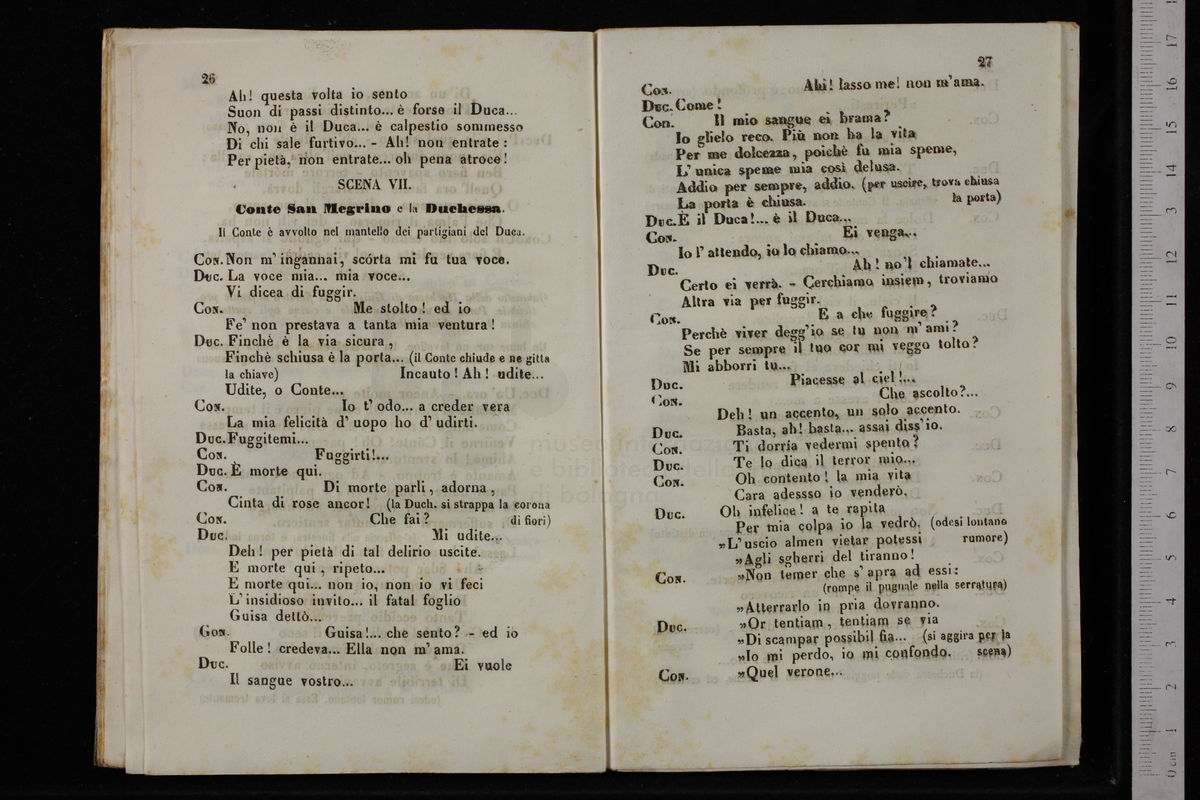 26
Ah! questa volta io sento
Suon di passi distinto... è forse il Duca...
No, non è il Duca... è calpestio sommesso
Di chi sale furtivo... - Ah! non entrate:
Per pietà, non entrate... oh pena atroce!
SCENA VII.
Conte San Megrino e la Duchessa.
Il Conte è avvolto nel mantello dei partigiani del Duca.
Con. Non m'ingannai, scórta mi fu tua voce.
Duc. La voce mia... mia voce...
Vi dicea di fuggir.
Con. Me stolto! ed io
Fe' non prestava a tanta mia ventura!
Duc. Finchè è la via sicura,
Finchè schiusa è la porta... (il Conte chiude e ne gitta
la chiave) Incauto! Ah! udite...
Udite, o Conte...
Con. Io t'odo... a creder vera
La mia felicità d'uopo ho d'udirti.
Duc. Fuggitemi...
Con. Fuggirti!...
Duc. È morte qui.
Con. Di morte parli, adorna,
Cinta di rose ancor! (la Duch. si strappa la corona
Con. Che fai? di fiori)
Duc. Mi udite...
Deh! per pietà di tal delirio uscite.
E morte qui, ripeto...
E morte qui... non io, non io vi feci
L'insidioso invito... il fatal foglio
Guisa dettò...
Con. Guisa!... che sento? - ed io
Folle! credeva... Ella non m'ama.
Duc. Ei vuole
Il sangue vostro...
27
Con. Ahi! lasso me! non m'ama.
Duc. Come!
Con. Il mio sangue ei brama?
Io glielo reco. Più non ha la vita
Per me dolcezza, poichè fu mia speme,
L'unica speme mia così delusa.
Addio per sempre, addio. (per uscire, trova chiusa
La porta è chiusa. la porta)
Duc. È il Duca!... è il Duca...
Con. Ei venga...
Io l'attendo, io lo chiamo...
Duc. Ah! no'l chiamate...
Certo ei verrà. - Cerchiamo insiem, troviamo
Altra via per fuggir.
Con. E a che fuggire?
Perchè viver degg'io se tu non m'ami?
Se per sempre il tuo cor mi veggo tolto?
Mi abborri tu...
Duc. Piacesse al ciel!...
Con. Che ascolto?...
Deh! un accento, un solo accento.
Duc. Basta, ah! basta... assai diss'io.
Con. Ti dorría vedermi spento?
Duc. Te lo dica il terror mio...
Con. Oh contento! la mia vita
Cara adessso io venderò.
Duc. Oh infelice! a te rapita
Per mia colpa io la vedrò. (odesi lontano
»L'uscio almen vietar potessi rumore)
»Agli sgherri del tiranno!
Con. »Non temer che s'apra ad essi:
(rompe il pugnale nella serratura)
»Atterrarlo in pria dovranno.
Duc. »Or tentiam, tentiam se via
»Di scampar possibil fia... (si aggira per la
»Io mi perdo, io mi confondo. scena)
Con. »Quel verone...